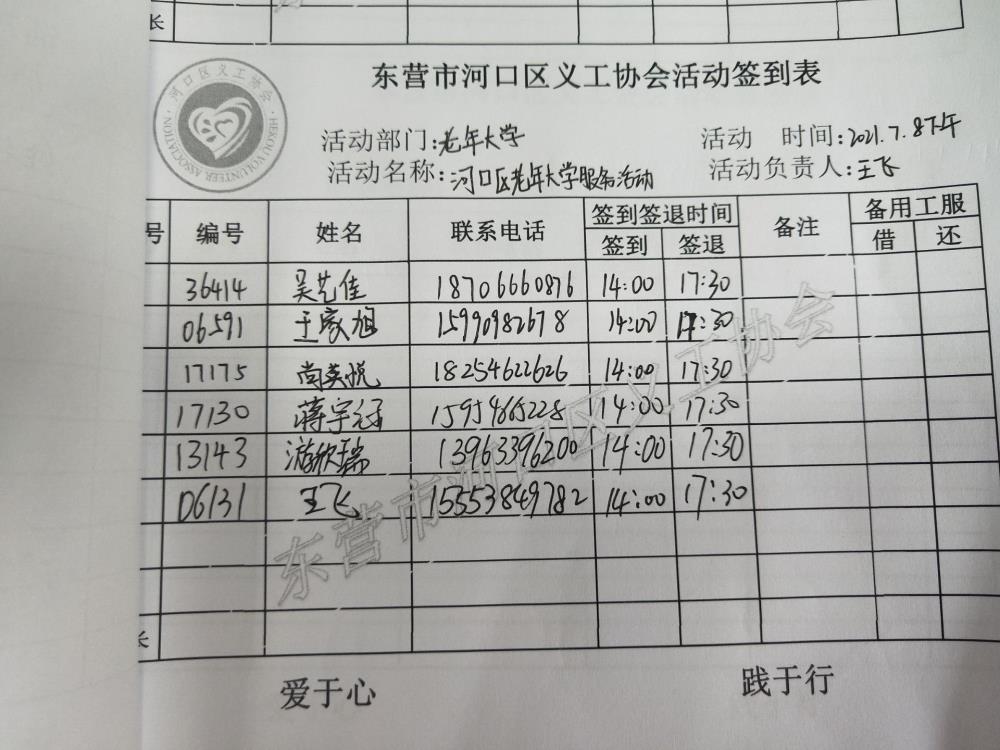 长
东营市河口区义工协会活动签到表
河口区义工协会
HEKOU VOLUNTEER ASSOCIATION
活动部门:老年大学 活动 时间:2021.7.8下午
活动名称:河口区老年大学服务活动 活动负责人:王飞
号 编号 姓名 联系电话 签到签退时间 备注 备用工服
签到 签退 借 还
36414 吴艺佳 18706660876 14:00 17:30
06591 王家旭 15990982678 14:00 17:30
17175 尚英悦 18254622626 14:00 17:30
17130 蒋宇 14:00 17:30
13143 游欣瑞 13963396200 14:00 17:30
06131 王飞 15553849782 14:00 17:30
东营市河口区义工协会
长
爱于心 践于行